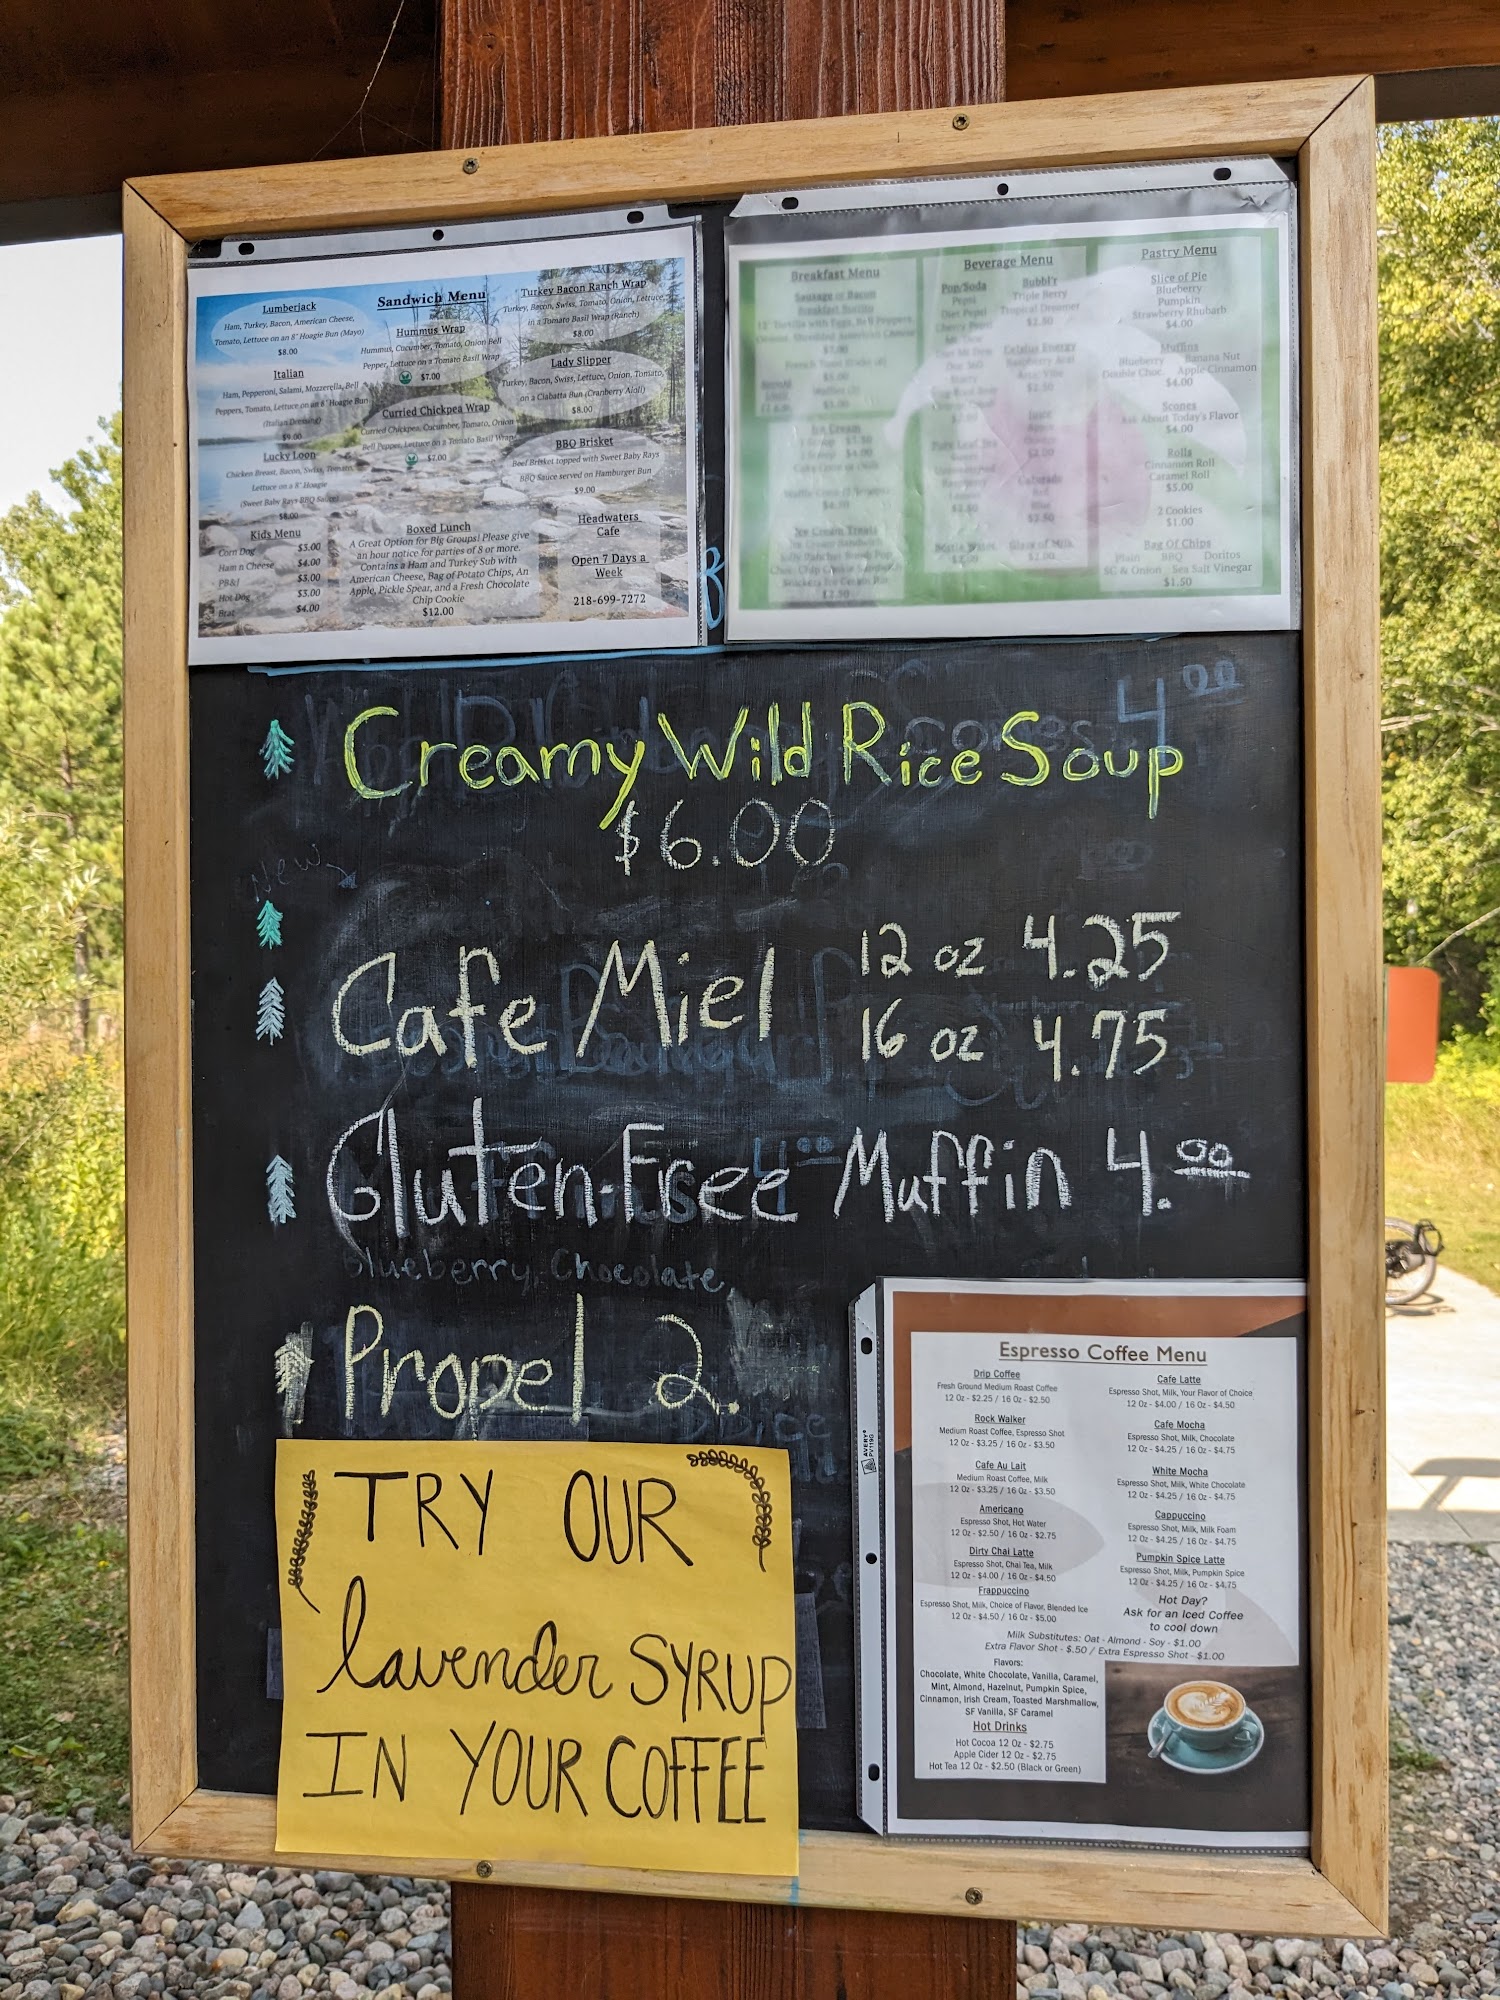 Sandwich Menu
Lumberjack
Ham, Turkey, Bacon, American Cheese,
Tomato, Lettuce on an 8" Hoagie Bun (Mayo)
$8.00
Italian
Ham, Pepperoni, Salami, Mozzerella, Bell
Peppers, Tomato, Lettuce on an 8" Hoagie Bun
$9.00
Lucky Loon
Chicken Breast, Bacon, Swiss, Tomato,
Lettuce on a 8" Hoagie
(Sweet Baby Rays BBQ Sauce)
$8.00
Kids Menu
Corn Dog $3.00
Ham n Cheese $4.00
PB&J $3.00
Hot Dog $3.00
Brat $4.00
Hummus Wrap
Hummus, Cucumber, Tomato, Onion Bell
Pepper, Lettuce on a Tomato Basil Wrap
$7.00
Curried Chickpea Wrap
Curried Chickpea, Cucumber, Tomato, Onion
Bell Pepper, Lettuce on a Tomato Basil Wrap
$7.00
Boxed Lunch
A Great Option for Big Groups! Please give
an hour notice for parties of 8 or more.
Contains a Ham and Turkey Sub with
American Cheese, Bag of Potato Chips, An
Apple, Pickle Spear, and a Fresh Chocolate
Chip Cookie
$12.00
Turkey Bacon Ranch Wrap
Turkey, Bacon, Swiss, Tomato, Onion, Lettuce,
in a Tomato Basil Wrap (Ranch)
$8.00
Lady Slipper
Turkey, Bacon, Swiss, Lettuce, Onion, Tomato,
on a Ciabatta Bun (Cranberry Aioli)
$8.00
BBQ Brisket
Beef Brisket topped with Sweet Baby Rays
BBQ Sauce served on Hamburger Bun
$9.00
Headwaters
Cafe
Open 7 Days a
Week
218-699-7272
Breakfast Menu
Sausage or Bacon
Ice Cream Treats
Beverage Menu
Pop/Soda
Pepsi
Diet Pepsi
Bubbl'r
Triple Berry
Tropical Dreamer
$2.50
Celsius Energy
$2.50
Glass of Milk
$2.00
Pastry Menu
Slice of Pie
Blueberry
Pumpkin
Strawberry Rhubarb
$4.00
Muffins
Blueberry Banana Nut
Double Choc. Apple Cinnamon
$4.00
Scones
Ask About Today's Flavor
$4.00
Rolls
Cinnamon Roll
Caramel Roll
$5.00
2 Cookies
$1.00
Bag Of Chips
Plain BBQ Doritos
SC & Onion Sea Salt Vinegar
$1.50
Creamy Wild Rice Soup
$6.00
New
Cafe Miel 12 oz 4.25
16 oz 4.75
Gluten-Free Muffin 4.00
Blueberry, Chocolate
Propel 2.
TRY OUR
lavender SYRUP
IN YOUR COFFEE
Espresso Coffee Menu
Drip Coffee
Fresh Ground Medium Roast Coffee
12 Oz - $2.25 / 16 Oz - $2.50
Rock Walker
Medium Roast Coffee, Espresso Shot
12 Oz - $3.25 / 16 Oz - $3.50
Cafe Au Lait
Medium Roast Coffee, Milk
12 Oz - $3.25 / 16 Oz - $3.50
Americano
Espresso Shot, Hot Water
12 Oz - $2.50 / 16 Oz - $2.75
Dirty Chai Latte
Espresso Shot, Chai Tea, Milk
12 Oz - $4.00 / 16 Oz - $4.50
Frappuccino
Espresso Shot, Milk, Choice of Flavor, Blended Ice
12 Oz - $4.50 / 16 Oz - $5.00
Cafe Latte
Espresso Shot, Milk, Your Flavor of Choice
12 Oz - $4.00 / 16 Oz - $4.50
Cafe Mocha
Espresso Shot, Milk, Chocolate
12 Oz - $4.25 / 16 Oz - $4.75
White Mocha
Espresso Shot, Milk, White Chocolate
12 Oz - $4.25 / 16 Oz - $4.75
Cappuccino
Espresso Shot, Milk, Milk Foam
12 Oz - $4.25 / 16 Oz - $4.75
Pumpkin Spice Latte
Espresso Shot, Milk, Pumpkin Spice
12 Oz - $4.25 / 16 Oz - $4.75
Hot Day?
Ask for an Iced Coffee
to cool down
Milk Substitutes: Oat - Almond - Soy - $1.00
Extra Flavor Shot - $.50 / Extra Espresso Shot - $1.00
Flavors:
Chocolate, White Chocolate, Vanilla, Caramel,
Mint, Almond, Hazelnut, Pumpkin Spice,
Cinnamon, Irish Cream, Toasted Marshmallow,
SF Vanilla, SF Caramel
Hot Drinks
Hot Cocoa 12 Oz - $2.75
Apple Cider 12 Oz - $2.75
Hot Tea 12 Oz - $2.50 (Black or Green)
AVERY